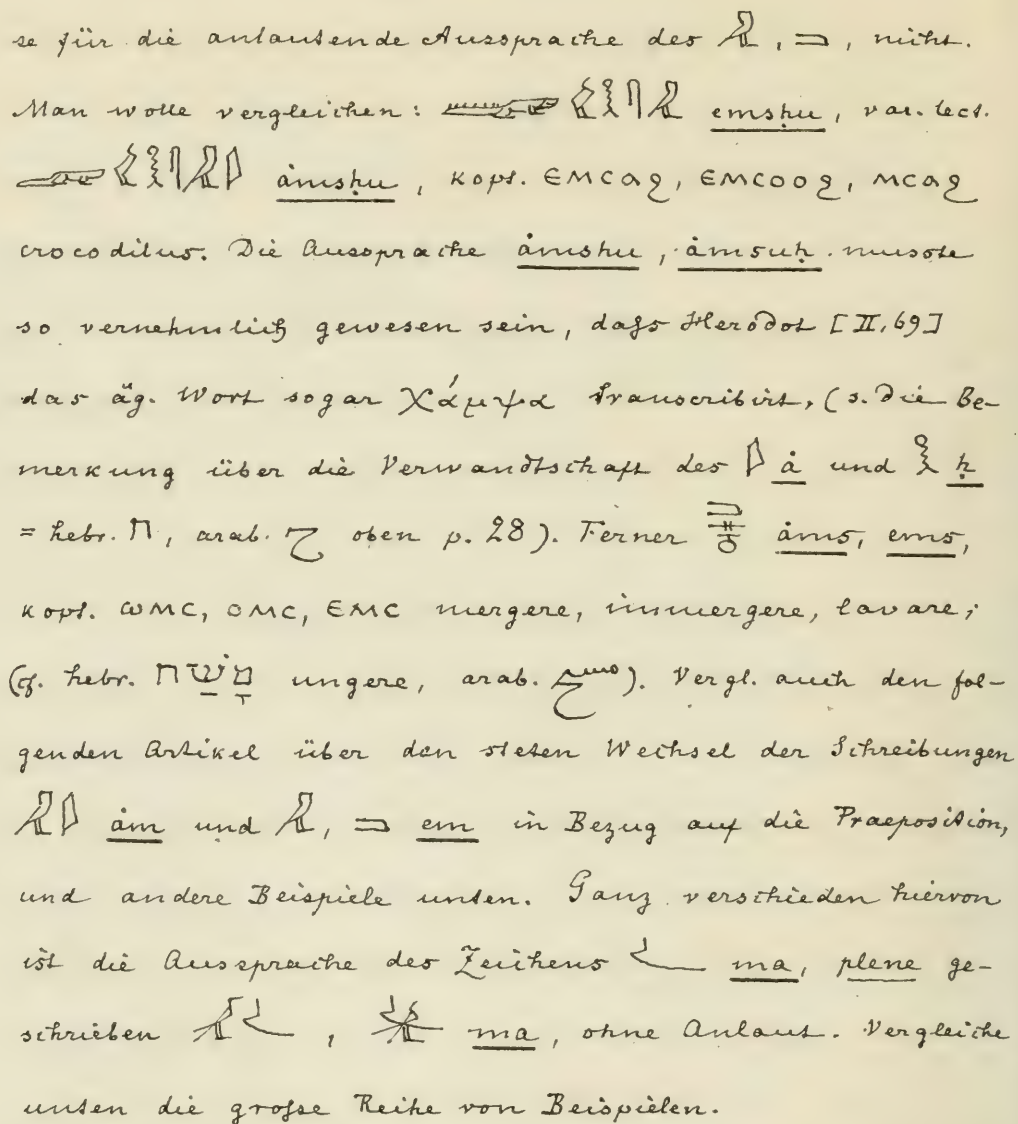 se für die anlautende Aussprache des 𓅓, 𓐝, nicht.
Man wolle vergleichen: 𓆊𓅱𓎛𓋴𓅓 emsḥu, var. lect.
𓆊𓅱𓎛𓋴𓅓𓇋 ȧmsḥu, kopt. ⲉⲙⲥⲁϩ, ⲉⲙⲥⲟⲟϩ, ⲙⲥⲁϩ
crocodilus. Die Aussprache ȧmsḥu, ȧmsuḥ musste
so vernehmlich gewesen sein, dass Herodot [II, 69]
das äg. Wort sogar χάμψα transcribirt, (s. die Be-
merkung über die Verwandtschaft des 𓇋 ȧ und 𓎛 ḥ
= hebr. ח, arab. ح oben p. 28). Ferner ȧms, ems,
kopt. ⲱⲙⲥ, ⲟⲙⲥ, ⲉⲙⲥ mergere, immergere, lavare;
(cf. hebr. מָשַׁח ungere, arab. مسح). Vergl. auch den fol-
genden Artikel über den steten Wechsel der Schreibungen
𓅓𓇋 ȧm und 𓅓, 𓐝 em in Bezug auf die Praeposition,
und andere Beispiele unten. Ganz verschieden hiervon
ist die Aussprache des Zeichens 𓌳 ma, plene ge-
schrieben 𓅓𓌳, ma, ohne Anlaut. Vergleiche
unten die grosse Reihe von Beispielen.